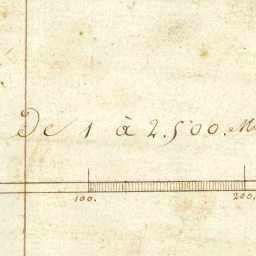 De 1 à 2.500.
100. 200.